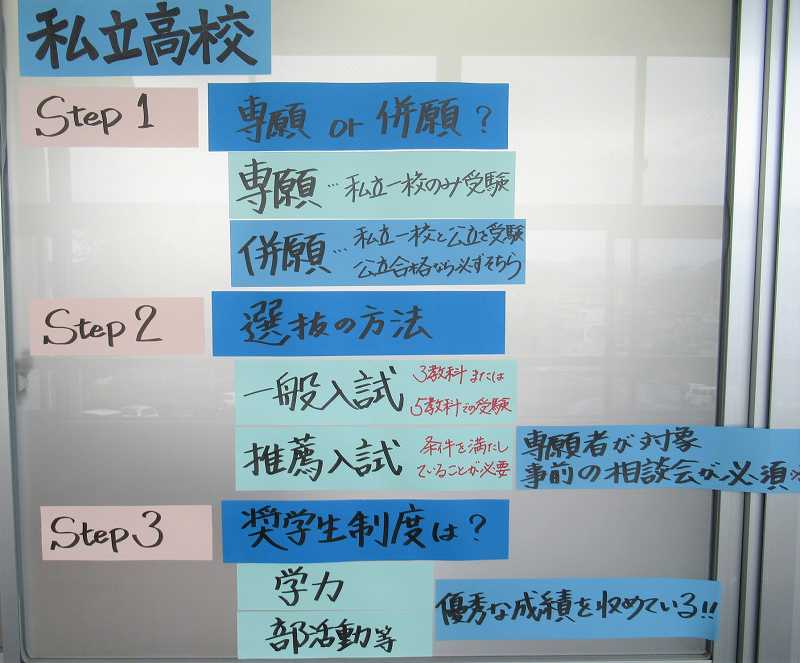 私立高校
Step 1
専願 or 併願 ?
専願 … 私立一校のみ受験
併願 … 私立一校と公立を受験
公立合格なら必ずそちら
Step 2
選抜の方法
一般入試 3教科または
5教科での受験
推薦入試 条件を満たし
ていることが必要
専願者が対象
事前の相談会が必須
Step 3
奨学生制度は?
学力
部活動等
優秀な成績を収めている!!